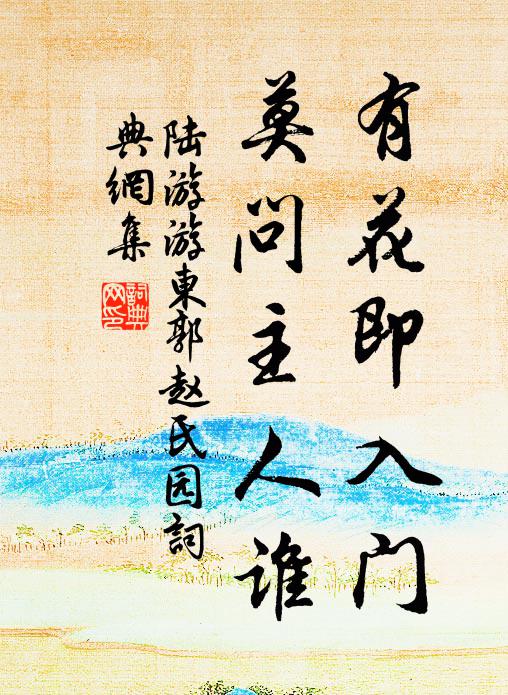 有花即入门
莫问主人谁
陆游游東郭赵氏园詞
典網集
詞典网印